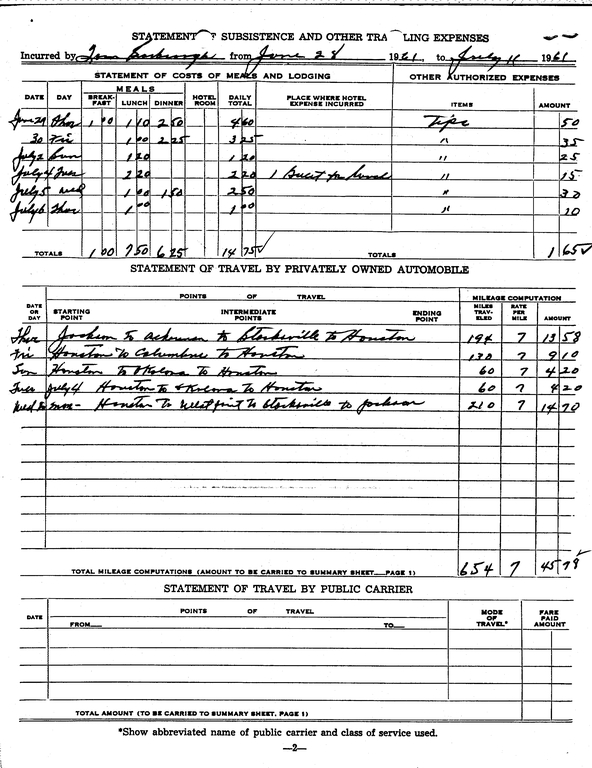 STATEMENT OF SUBSISTENCE AND OTHER TRA LING EXPENSES
Incurred by Tom from June 28 1961, to July 11 1961
STATEMENT OF COSTS OF MEALS AND LODGING OTHER AUTHORIZED EXPENSES
MEALS
DATE DAY BREAK-FAST LUNCH DINNER HOTEL ROOM DAILY TOTAL PLACE WHERE HOTEL EXPENSE INCURRED ITEMS AMOUNT
June 29 Thur 1 00 1 10 2 50 4 60 Tips 50
30 Fri 1 00 2 25 3 25 " 35
July 2 Sun 1 20 1 20 " 25
July 4 Tues 2 20 2 20 1 for " 15
July 5 Wed 1 00 1 50 2 50 " 30
July 6 Thur 1 00 1 00 " 10
TOTALS 1 00 7 50 6 25 14 75 TOTALS 1 65
STATEMENT OF TRAVEL BY PRIVATELY OWNED AUTOMOBILE
POINTS OF TRAVEL MILEAGE COMPUTATION
DATE OR DAY STARTING POINT INTERMEDIATE POINTS ENDING POINT MILES TRAV-ELED RATE PER MILE AMOUNT
Thur Jackson to Ackerman to Starksville to Houston 194 7 13 58
Fri Houston to Columbus to Houston 130 7 9 10
Sun Houston to Okolona to Houston 60 7 4 20
Tues July 4 Houston to Okolona to Houston 60 7 4 20
Wed to Houston to West Point to Starksville to Jackson 210 7 14 70
TOTAL MILEAGE COMPUTATIONS (AMOUNT TO BE CARRIED TO SUMMARY SHEET PAGE 1) 654 7 45 78
STATEMENT OF TRAVEL BY PUBLIC CARRIER
DATE POINTS OF TRAVEL MODE OF TRAVEL* FARE PAID AMOUNT
FROM TO
TOTAL AMOUNT (TO BE CARRIED TO SUMMARY SHEET, PAGE 1)
*Show abbreviated name of public carrier and class of service used.
—2—